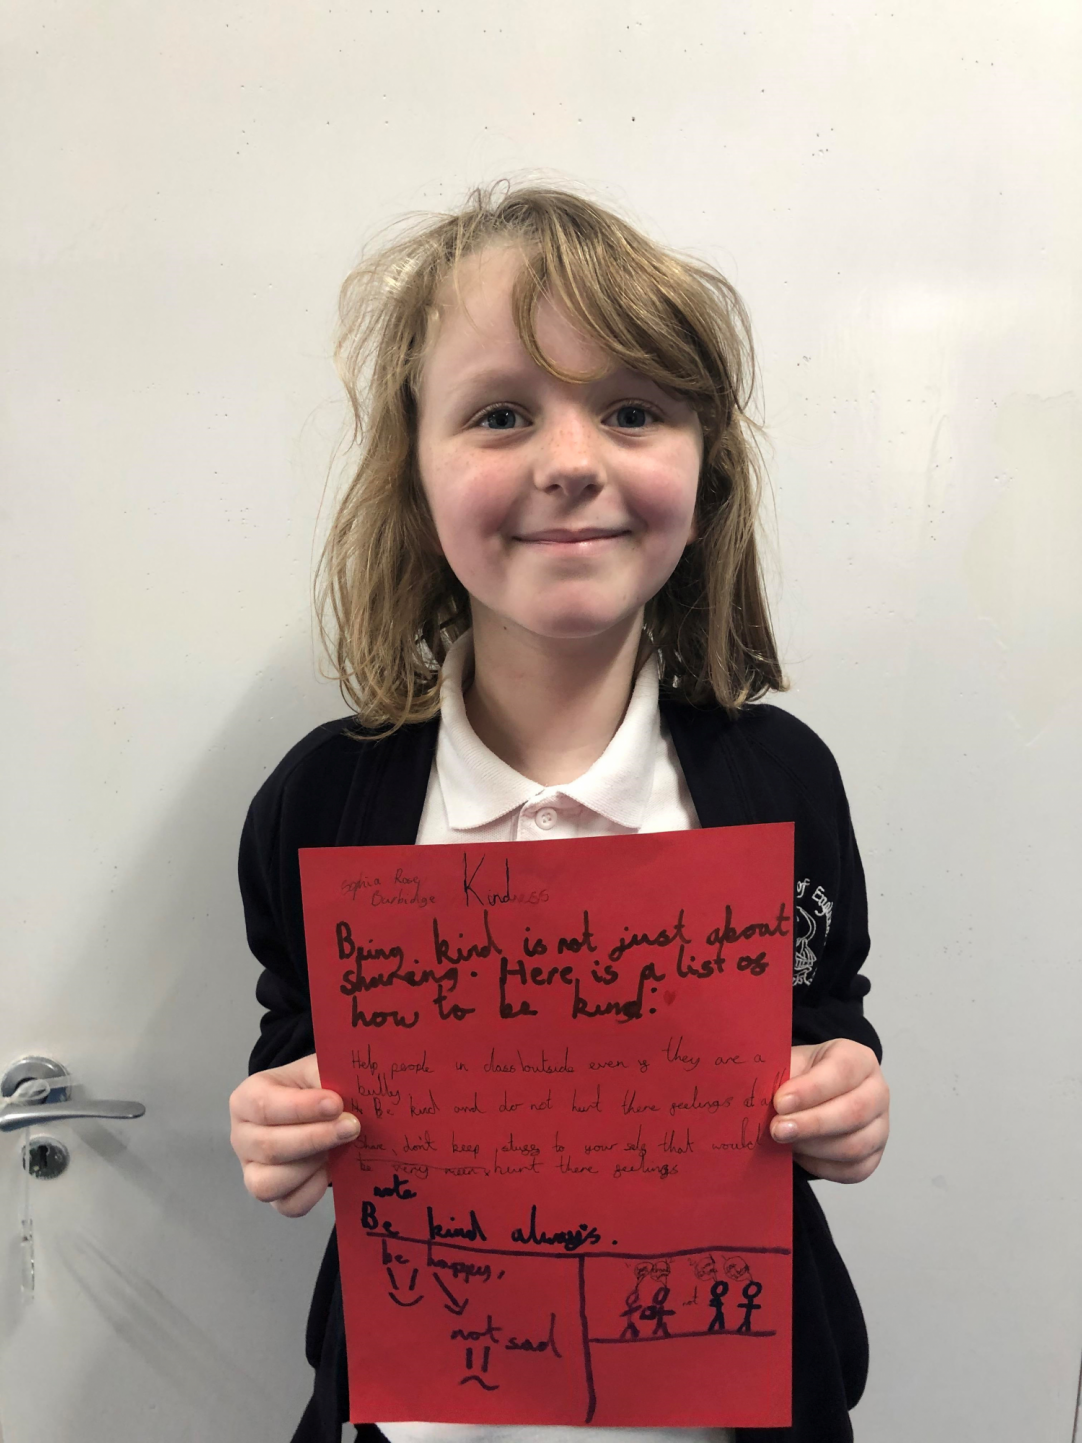 Sophia Rose
Burbidge
Kindness
Being kind is not just about
sharing. Here is a list of
how to be kind:
Help people in class/outside even if they are a
bully
Be kind and do not hurt there feelings at all
Share, don't keep stuff to your self that would
be very mean, hurt there feelings
note
Be kind always.
be happy,
not sad
not
of Engl